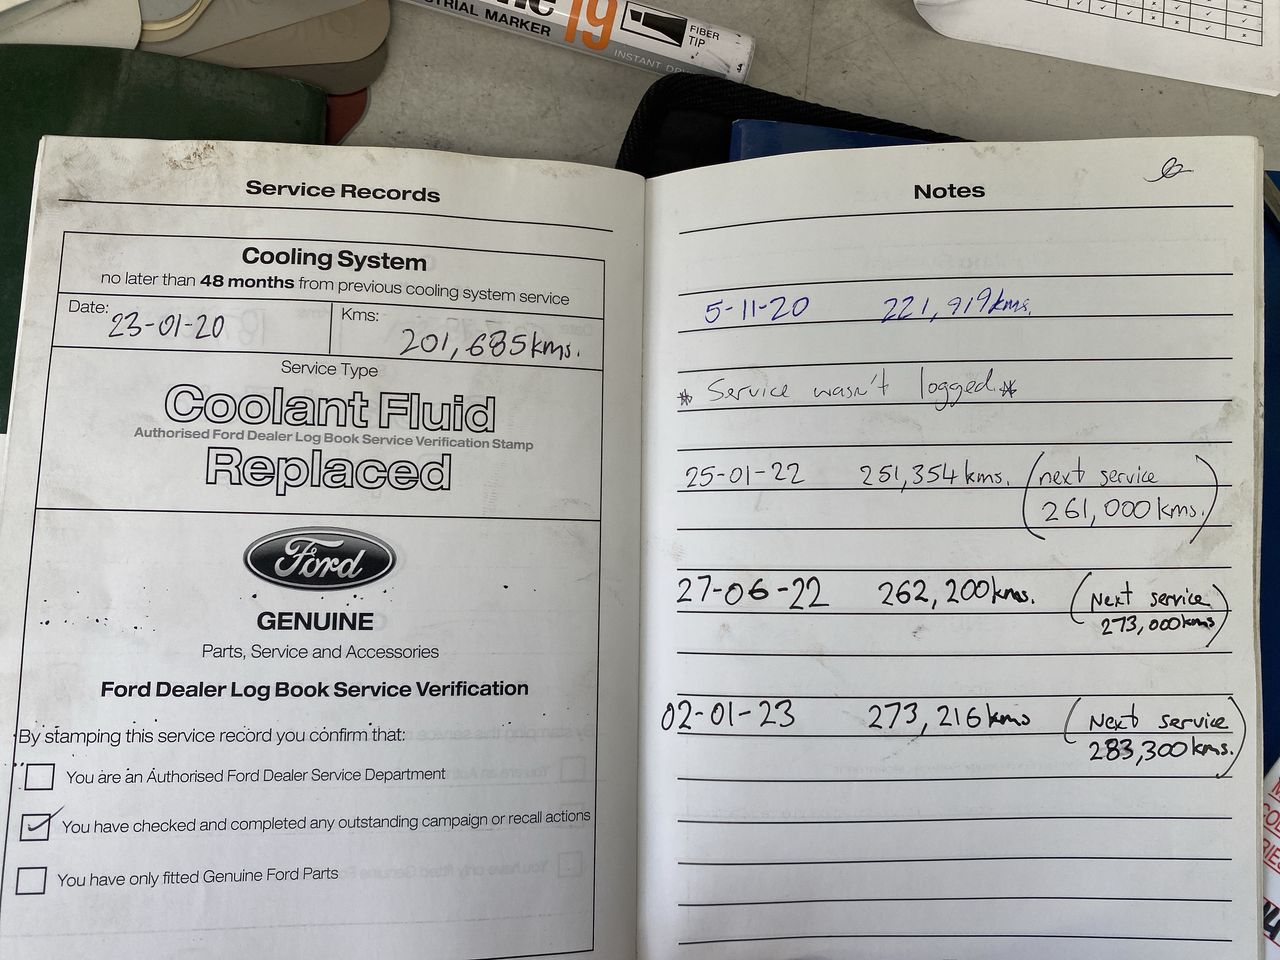 STRIAL MARKER
19
FIBER
TIP
INSTANT
Service Records
Cooling System
no later than 48 months from previous cooling system service
Date:
23-01-20
Kms:
201,685kms.
Service Type
Coolant Fluid
Authorised Ford Dealer Log Book Service Verification Stamp
Replaced
Ford
GENUINE
Parts, Service and Accessories
Ford Dealer Log Book Service Verification
By stamping this service record you confirm that:
You are an Authorised Ford Dealer Service Department
You have checked and completed any outstanding campaign or recall actions
You have only fitted Genuine Ford Parts
Notes
5-11-20 221,919kms.
* Service wasn't logged.*
25-01-22 251,354kms. (next service
261,000kms.)
27-06-22 262,200kms. (Next service
273,000kms)
02-01-23 273,216kms (Next service
283,300kms.)